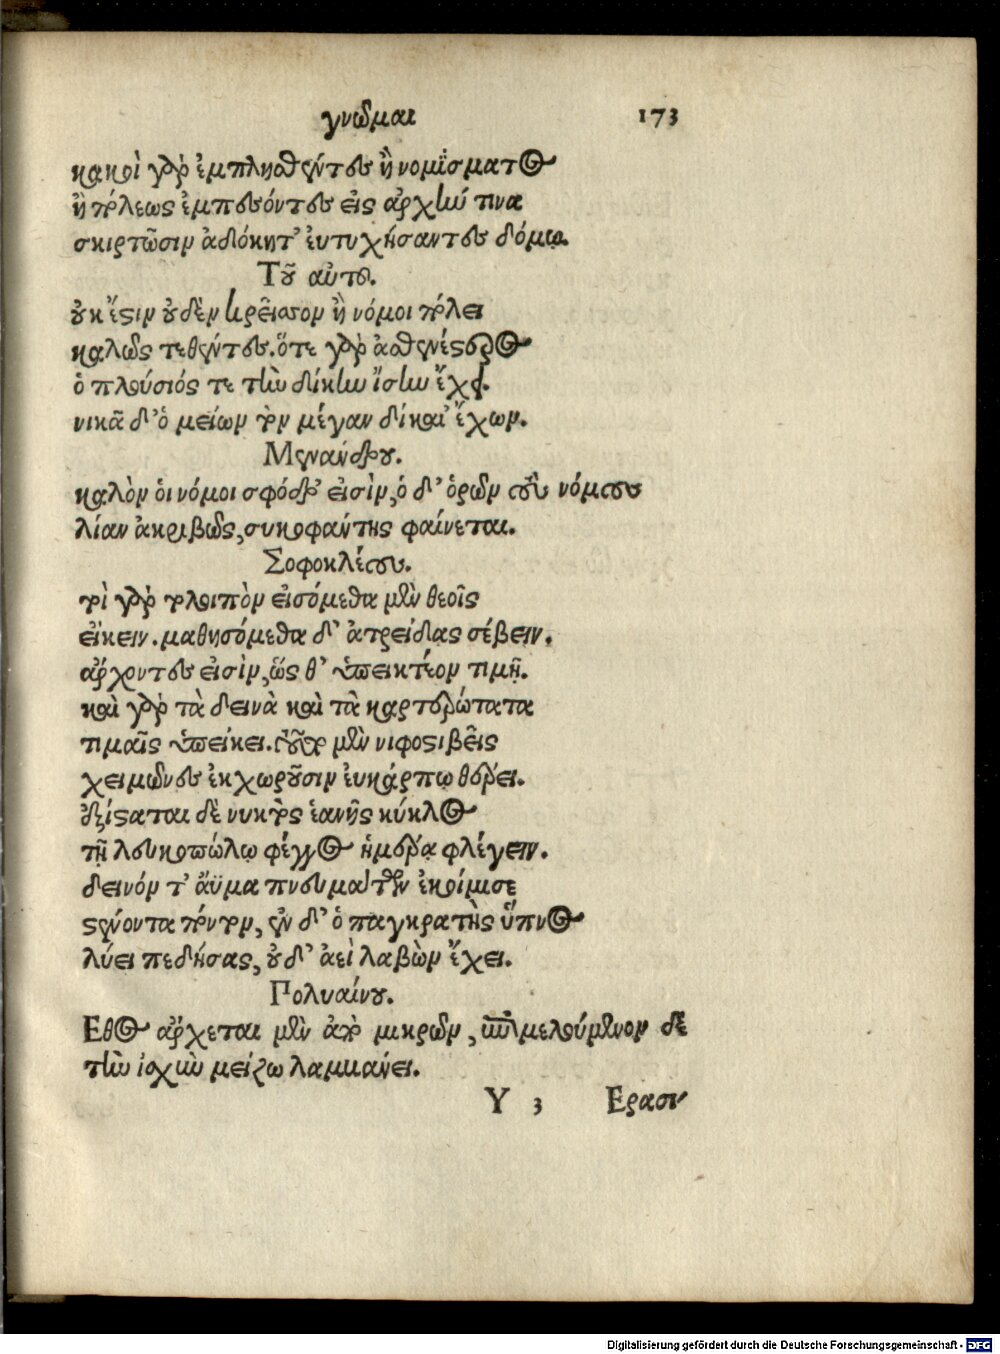 γνῶμαι 173
κακοὶ γὰρ ἐμπλησθέντες ἢ νομίσματος
ἢ πόλεως ἐμπεσόντες εἰς ἀρχήν τινα
σκιρτῶσιν ἀδόκητ' εὐτυχήσαντες δόμῳ.
Τοῦ αὐτοῦ.
οὐκ ἔστιν οὐδὲν κρεῖσσον ἢ νόμοι πόλει
καλῶς τεθέντες. ὅτε γὰρ ἀσθενέστερος
ὁ πλούσιός τε τὴν δίκην ἴσην ἔχει.
νικᾷ δ' ὁ μείων τὸν μέγαν δίκαι' ἔχων.
Μενάνδρου.
καλὸν οἱ νόμοι σφόδρ' εἰσὶν, ὁ δ' ὁρῶν τοὺς νόμους
λίαν ἀκριβῶς, συκοφάντης φαίνεται.
Σοφοκλέους.
τοὶ γὰρ τὸ λοιπὸν εἰσόμεθα μὲν θεοῖς
εἴκειν. μαθησόμεθα δ' ἀτρείδας σέβειν.
ἄρχοντες εἰσὶν, ὥς θ' ὑπεικτέον τιμῇ.
καὶ γὰρ τὰ δεινὰ καὶ τὰ καρτερώτατα
τιμαῖς ὑπείκει. τοῦτο μὲν νιφοστιβεῖς
χειμῶνες ἐκχωροῦσιν εὐκάρπῳ θέρει.
ἐξίσταται δὲ νυκτὸς ἑανῆς κύκλος
τῇ λευκοπώλῳ φέγγος ἡμέρᾳ φλέγειν.
δεινόν τ' ἄϋμα πνευμάτων ἐκοίμισε
στένοντα πόντον, ἐν δ' ὁ παγκρατὴς ὕπνος
λύει πεδήσας, οὐδ' ἀεὶ λαβὼν ἔχει.
Πολυαίνου.
Εθος ἄρχεται μὲν ἀπὸ μικρῶν, ἀμελούμενον δὲ
τὴν ἰσχὺν μείζω λαμβάνει.
Υ 3 Ερασι
Digitalisierung gefördert durch die Deutsche Forschungsgemeinschaft - DFG